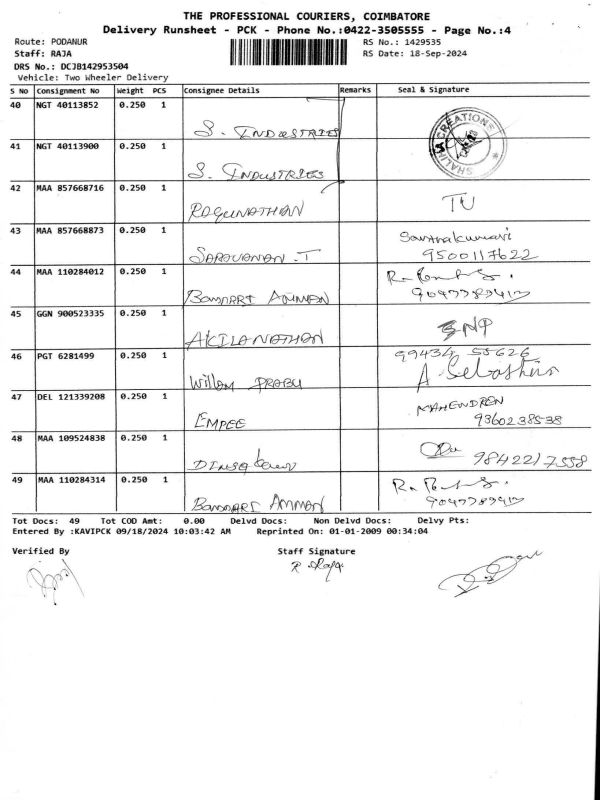 THE PROFESSIONAL COURIERS, COIMBATORE
Delivery Runsheet - PCK - Phone No.:0422-3505555 - Page No.:4
Route: PODANUR RS No.: 1429535
Staff: RAJA RS Date: 18-Sep-2024
DRS No.: DCJB142953504
Vehicle: Two Wheeler Delivery
S No Consignment No Weight PCS Consignee Details Remarks Seal & Signature
40 NGT 40113852 0.250 1
S. INDUSTRIES
SHALINI CREATIONS
41 NGT 40113900 0.250 1
S. INDUSTRIES
42 MAA 857668716 0.250 1
RAGUNATHAN
43 MAA 857668873 0.250 1
SARAVANAN .T 9500117622
44 MAA 110284012 0.250 1
BANNARI AMMAN
45 GGN 900523335 0.250 1
AKILANATHAN
46 PGT 6281499 0.250 1 99434 55626
WILLOM PRABU A. Sebastin
47 DEL 121339208 0.250 1 MAHENDREN
EMPEE 9360238538
48 MAA 109524838 0.250 1
9842217558
49 MAA 110284314 0.250 1
BANNARI AMMAN
Tot Docs: 49 Tot COD Amt: 0.00 Delvd Docs: Non Delvd Docs: Delvy Pts:
Entered By :KAVIPCK 09/18/2024 10:03:42 AM Reprinted On: 01-01-2009 00:34:04
Verified By Staff Signature
R. Raja